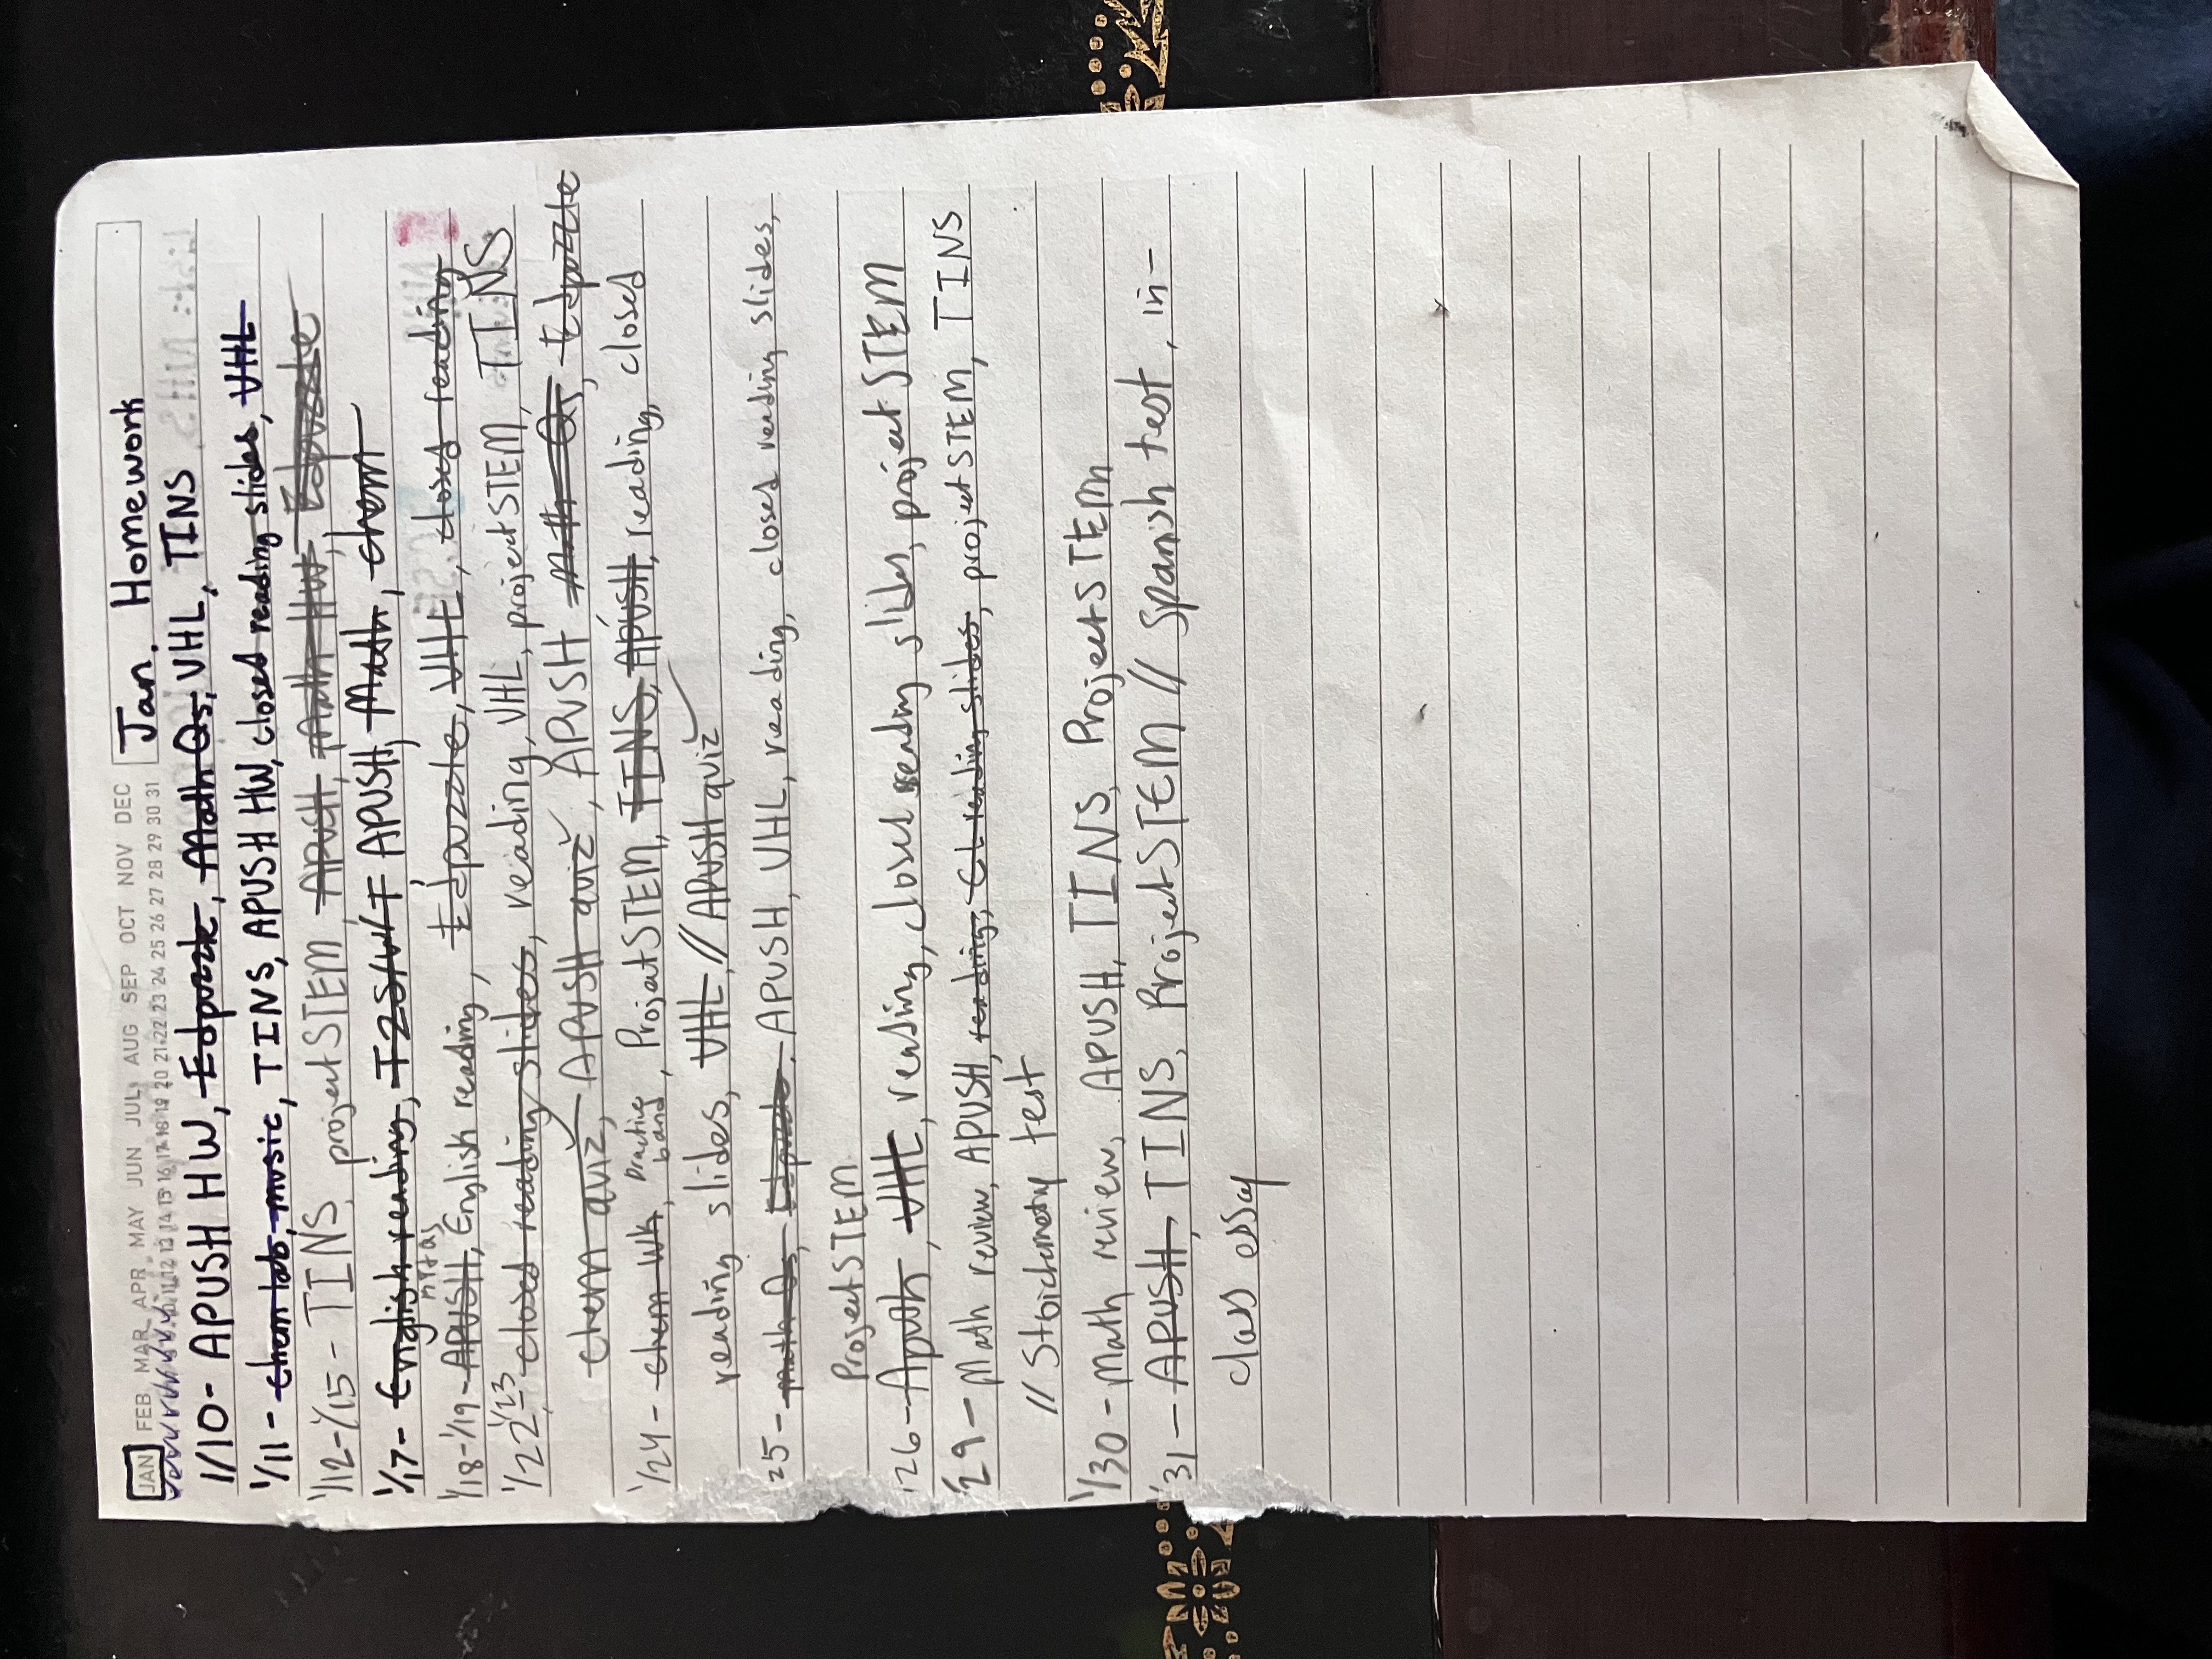 JAN FEB MAR APR MAY JUN JUL AUG SEP OCT NOV DEC Jan. Homework
10 11 12 13 14 15 16 17 18 19 20 21 22 23 24 25 26 27 28 29 30 31
1/10- APUSH HW, Edpuzzle, Math Qs, VHL, TINS
1/11- chem lab, music, TINS, APUSH HW, closed reading slides, VHL
1/12-1/15- TINS, projectSTEM, APUSH, Math HW, Edpuzzle
1/17- English reading, APUSH, Math, chem
1/18-1/19- APUSH, English reading, Edpuzzle, VHL, closed reading
1/22-1/23 closed reading slides, reading, VHL, projectSTEM, TINS
chem quiz, APUSH quiz, APUSH math Qs, Edpuzzle
1/24- chem Wk, Practice band, ProjectSTEM, TINS, APUSH, reading, closed
reading slides, VHL, // APUSH quiz
25- math Qs, Edpuzzle. APUSH, VHL, reading, closed reading slides,
ProjectSTEM
26- Apush, VHL, reading, closed reading slides, projectSTEM
29- Math review, APUSH, reading, CL reading slides, projectSTEM, TINS
// Stoichometry test
1/30- Math review, APUSH, TINS, ProjectSTEM
31- APUSH, TINS, ProjectSTEM // Spanish test, in-
class essay